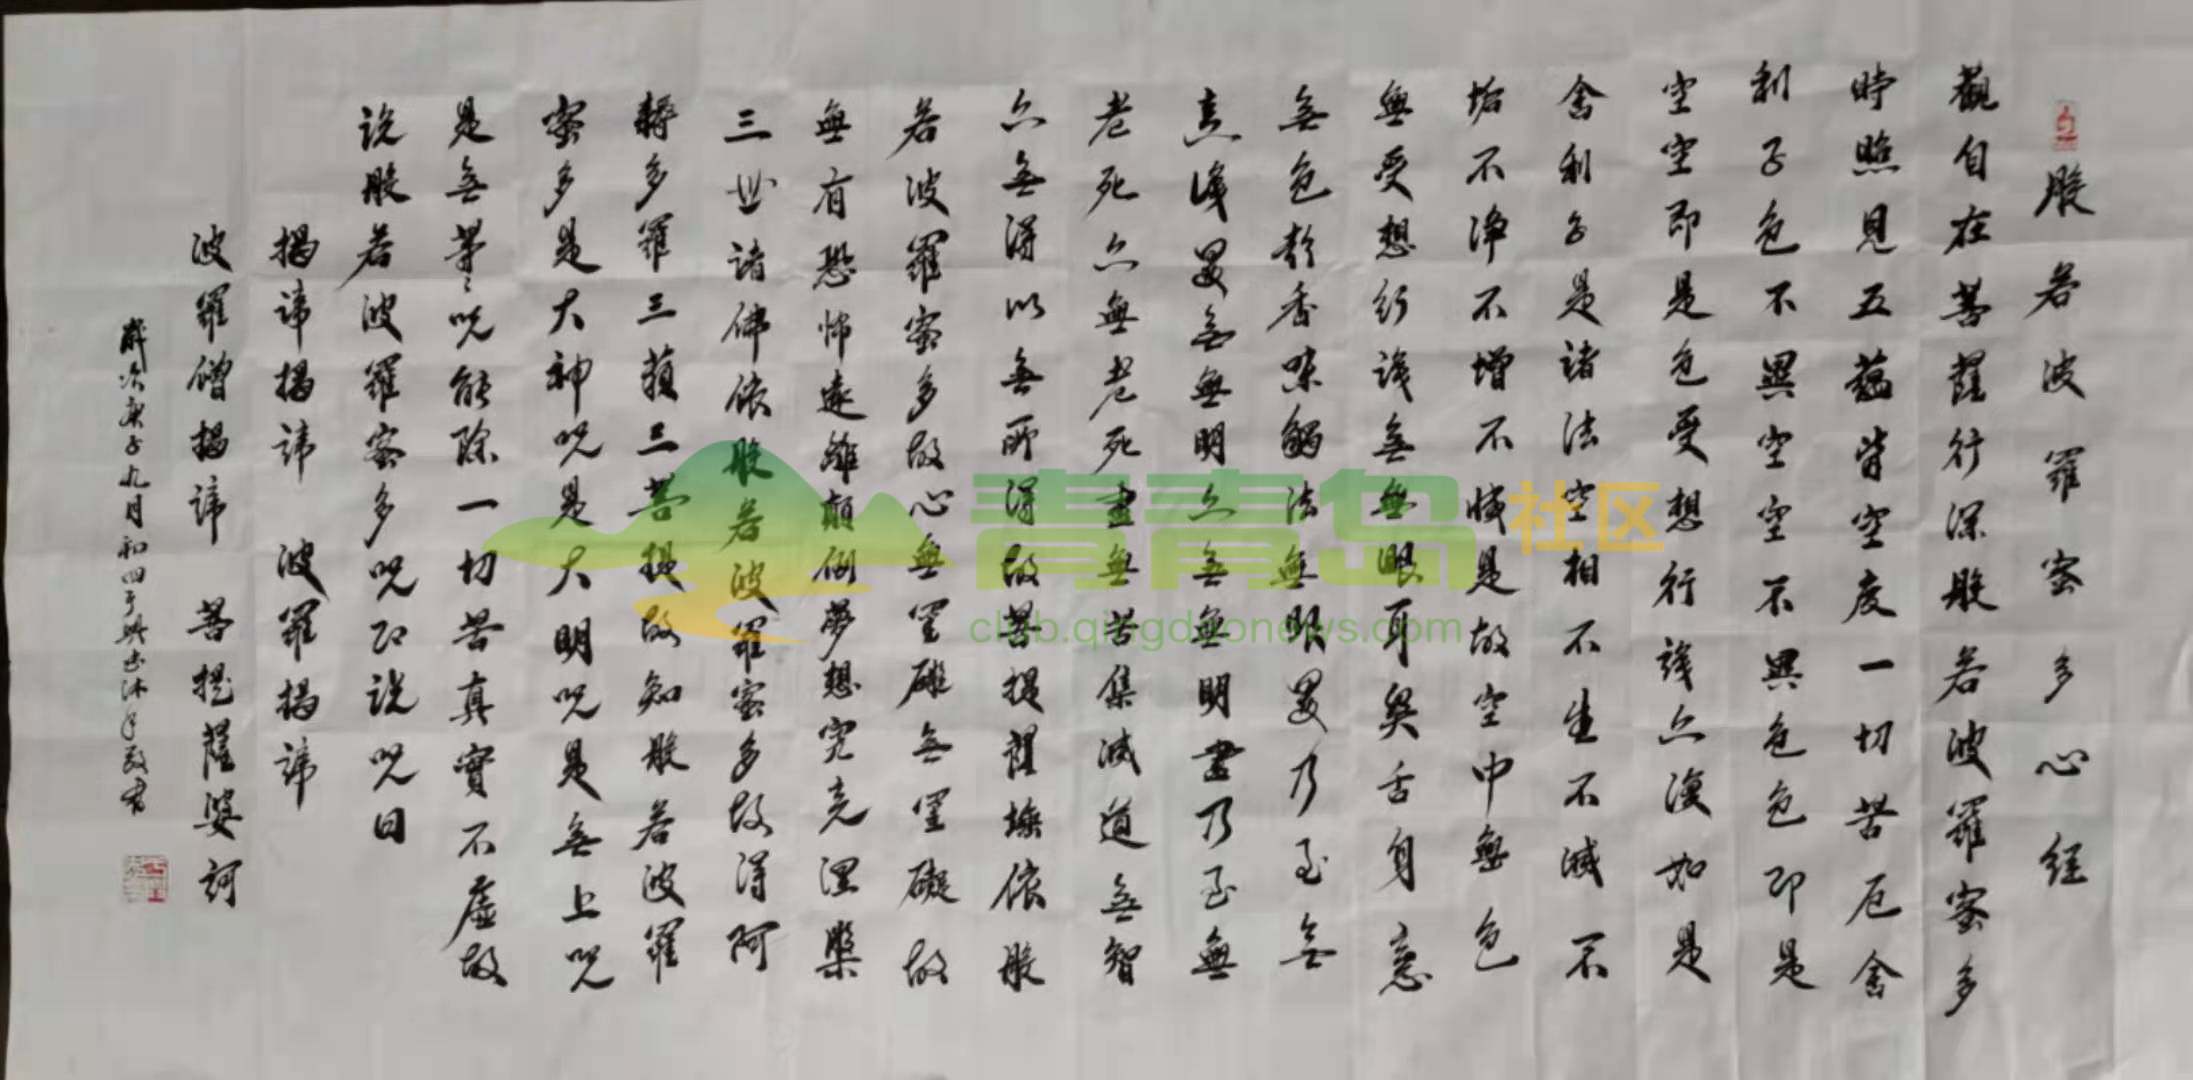 般若波羅蜜多心經
觀自在菩薩行深般若波羅蜜多
時照見五蘊皆空度一切苦厄舍
利子色不異空空不異色色即是
空空即是色受想行識亦復如是
舍利子是諸法空相不生不滅不
垢不淨不增不減是故空中無色
無受想行識無無眼耳鼻舌身意
無色聲香味觸法無眼界乃至無
意識界無無明亦無無明盡乃至無
老死亦無老死盡無苦集滅道無智
亦無得以無所得故菩提薩埵依般
若波羅蜜多故心無罣礙無罣礙故
無有恐怖遠離顛倒夢想究竟涅槃
三世諸佛依般若波羅蜜多故得阿
耨多羅三藐三菩提故知般若波羅
蜜多是大神咒是大明咒是無上咒
是無等々咒能除一切苦真實不虛故
說般若波羅蜜多咒即說咒曰
揭諦揭諦 波羅揭諦
波羅僧揭諦 菩提薩婆訶
歲次庚子九月初四于沐手敬書
青青岛社区
club.qingdaonews.com